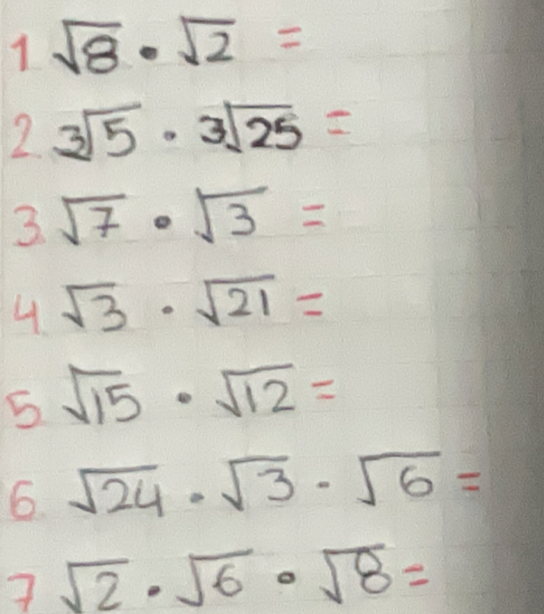 1 √8 · √2 =
2 3√5 · 3√25 =
3. √7 · √3 =
4 √3 · √21 =
5 √15 · √12 =
6 √24 · √3 · √6 =
7 √2 · √6 · √8 =